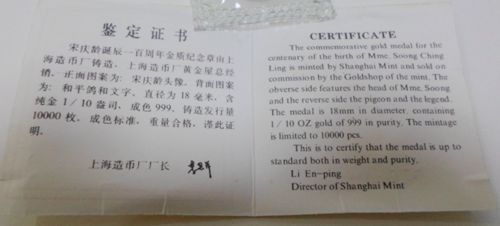 鉴定证书
宋庆龄诞辰一百周年金质纪念章由上
海造币厂铸造，上海造币厂黄金屋总经
销。正面图案为：宋庆龄头像，背面图案
为：和平鸽和文字，直径为18毫米，含
纯金1/10盎司，成色999，铸造发行量
10000枚。成色标准，重量合格，谨此证
明。
上海造币厂厂长
CERTIFICATE
The commemorative gold medal for the
centenary of the birth of Mme. Soong Ching
Ling is minted by Shanghai Mint and sold on
commission by the Goldshop of the mint. The
obverse side features the head of Mme. Soong
and the reverse side the pigeon and the legend.
The medal is 18mm in diameter, containing
1/10 OZ gold of 999 in purity. The mintage
is limited to 10000 pcs.
This is to certify that the medal is up to
standard both in weight and purity.
Li En-ping
Director of Shanghai Mint